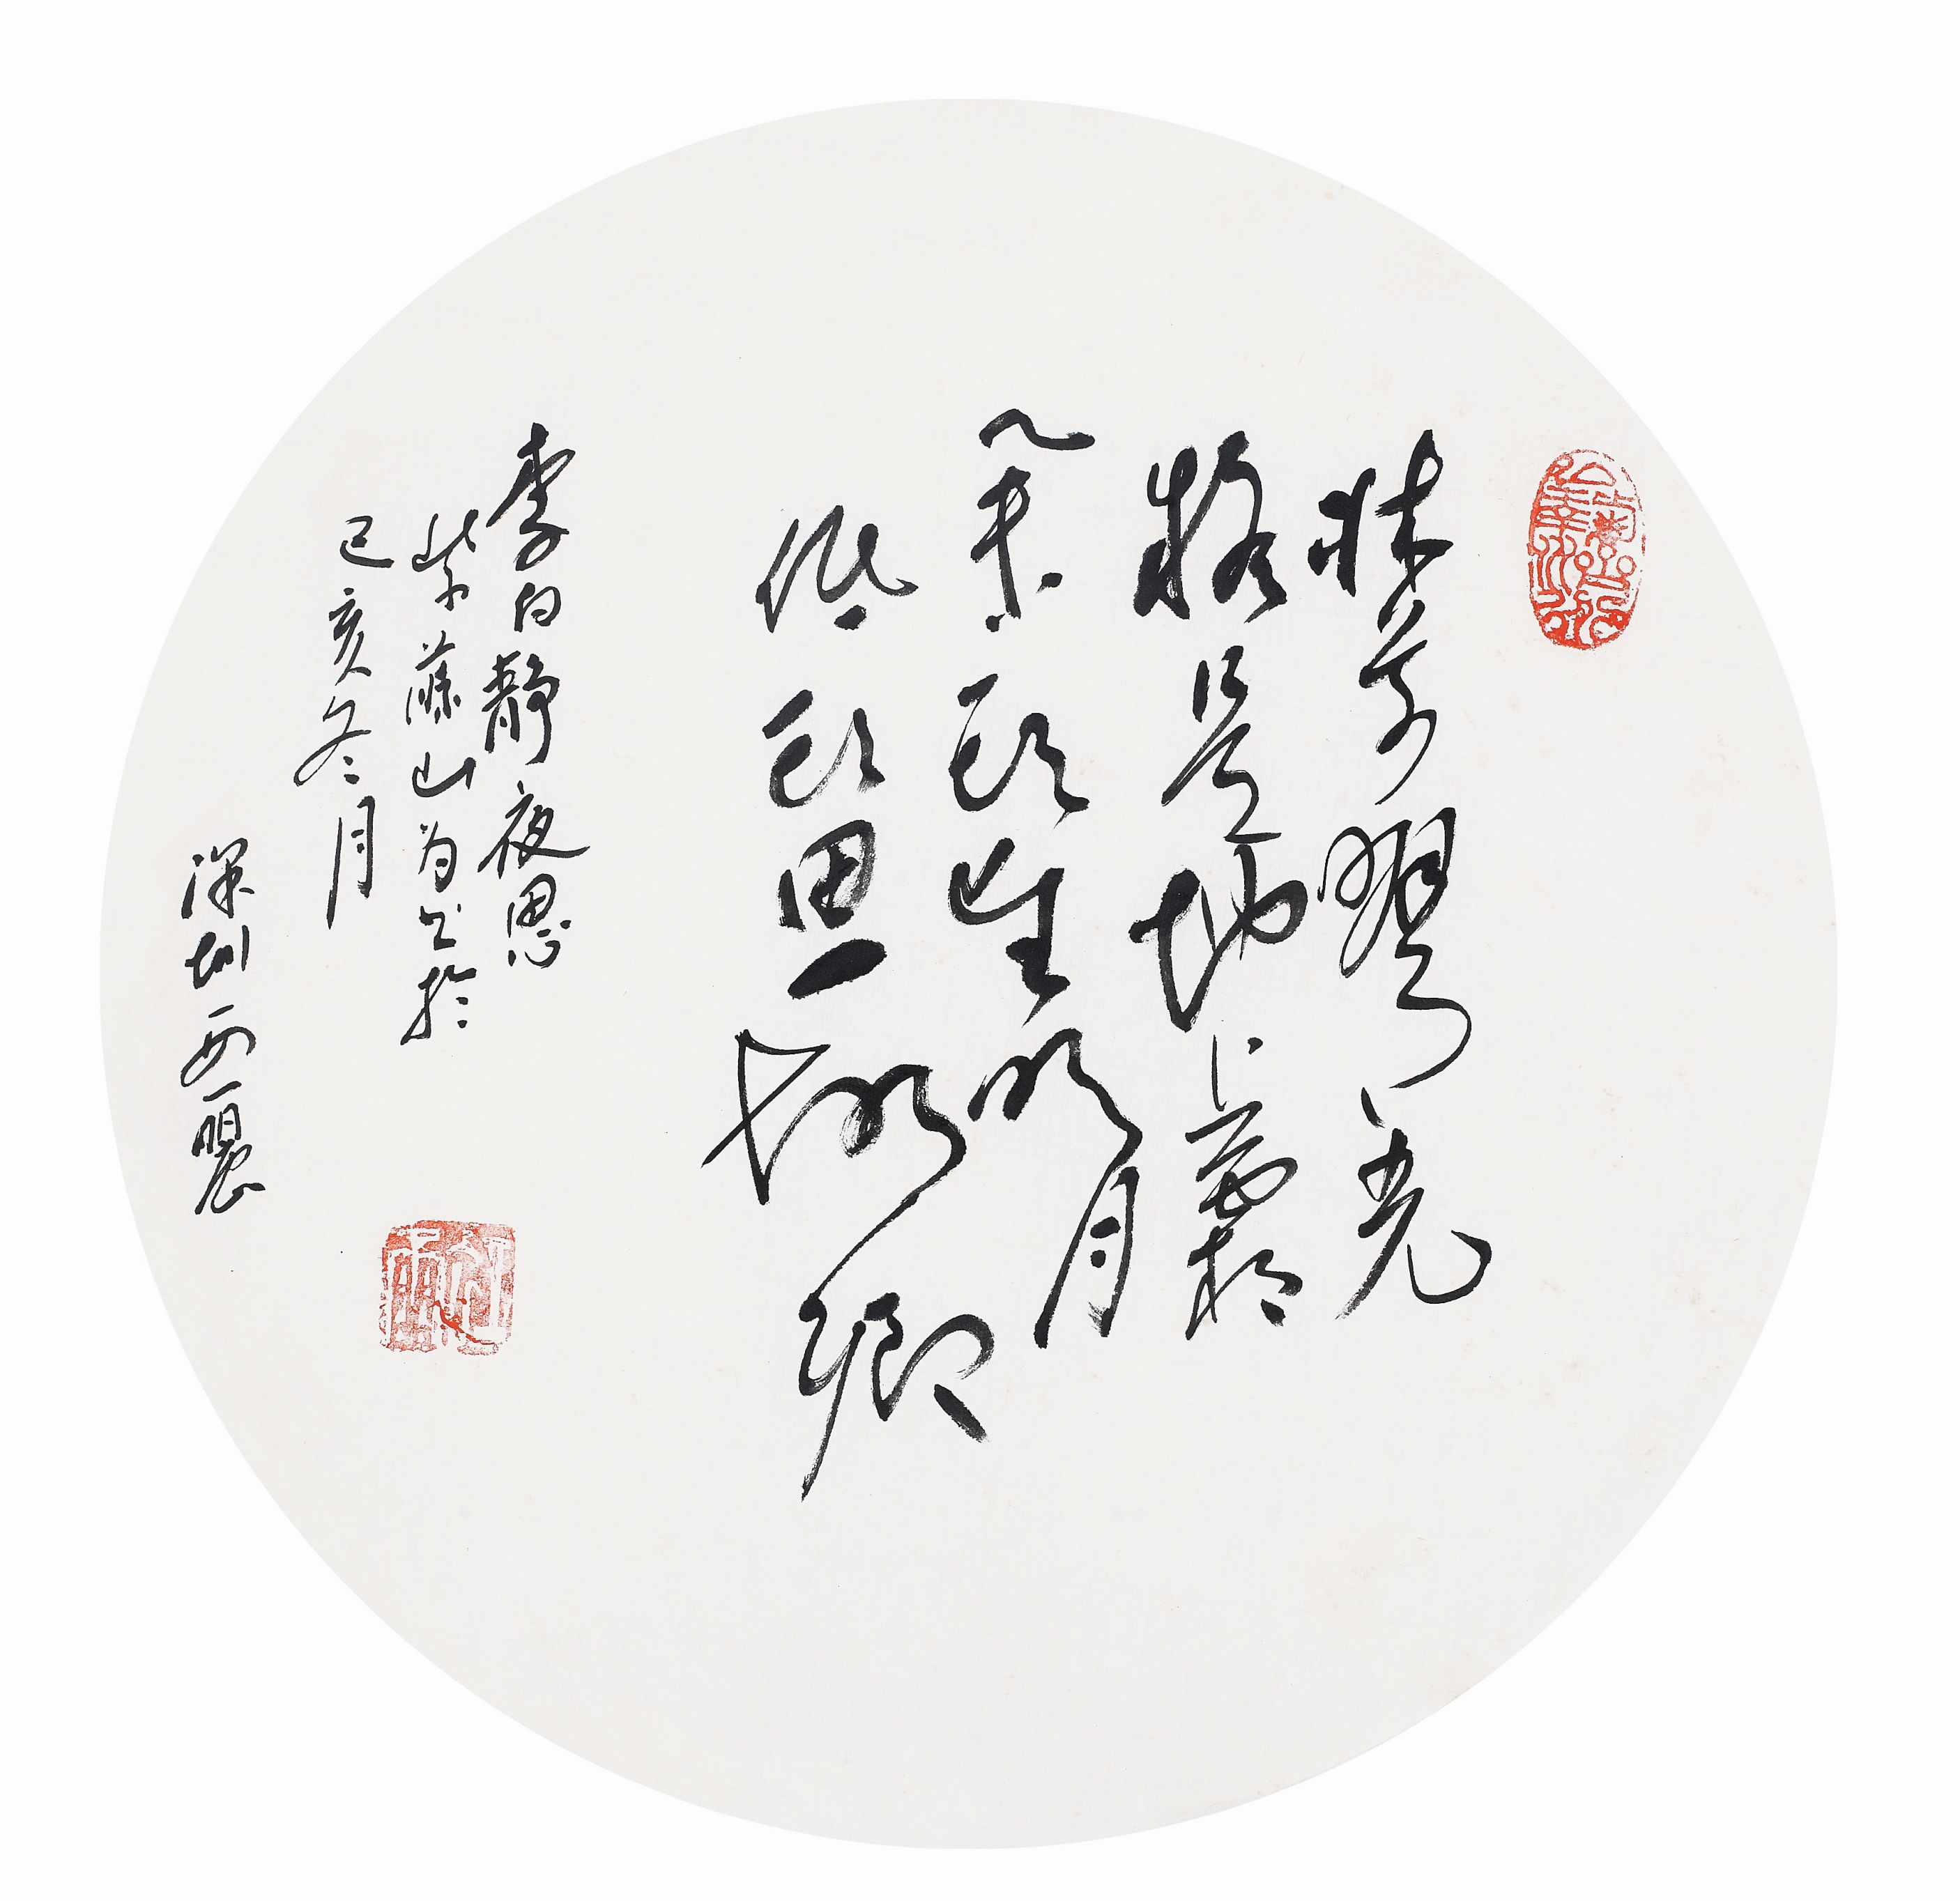 牀前明月光
疑是地上霜
舉頭望明月
低頭思故鄉
李白靜夜思
紫藤山於
己亥冬月
深圳